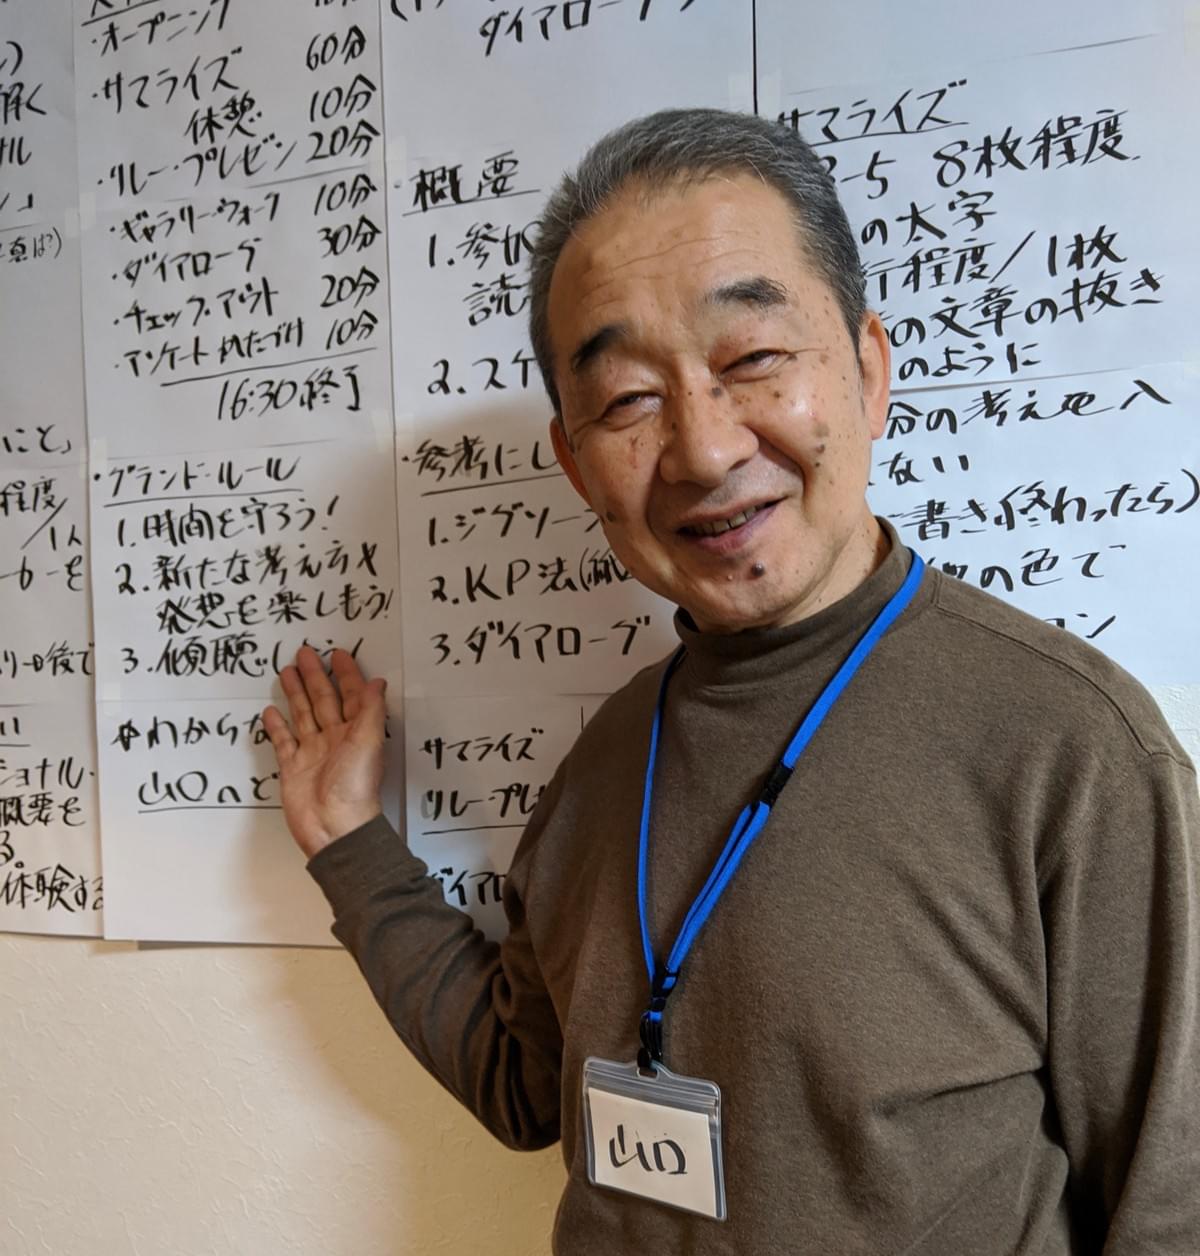 解く
・オープニング
・サマライズ 60分
休憩 10分
・リレー・プレゼン 20分
・ギャラリー・ウォーク 10分
・ダイアローグ 30分
・チェック・アウト 20分
・アンケート かたづけ 10分
16:30終了
・グランド・ルール
1.時間を守ろう!
2.新たな考え方や
発想を楽しもう!
3.傾聴
わからな
山口へ
ダイアローグ
・概要
1.参加
読
2.スケ
・参考にし
1.ジグソー
2.KP法(紙
3.ダイアローグ
サマライズ
リレープレ
ダイアロ
サマライズ
3-5 8枚程度
の太字
行程度/1枚
の文章の抜き
のように
分の考えを入
ない
書き終わったら)
の色で
こと」
程度
/1人
り一日後で
ショナル・
概要を
る。
体験する
山口